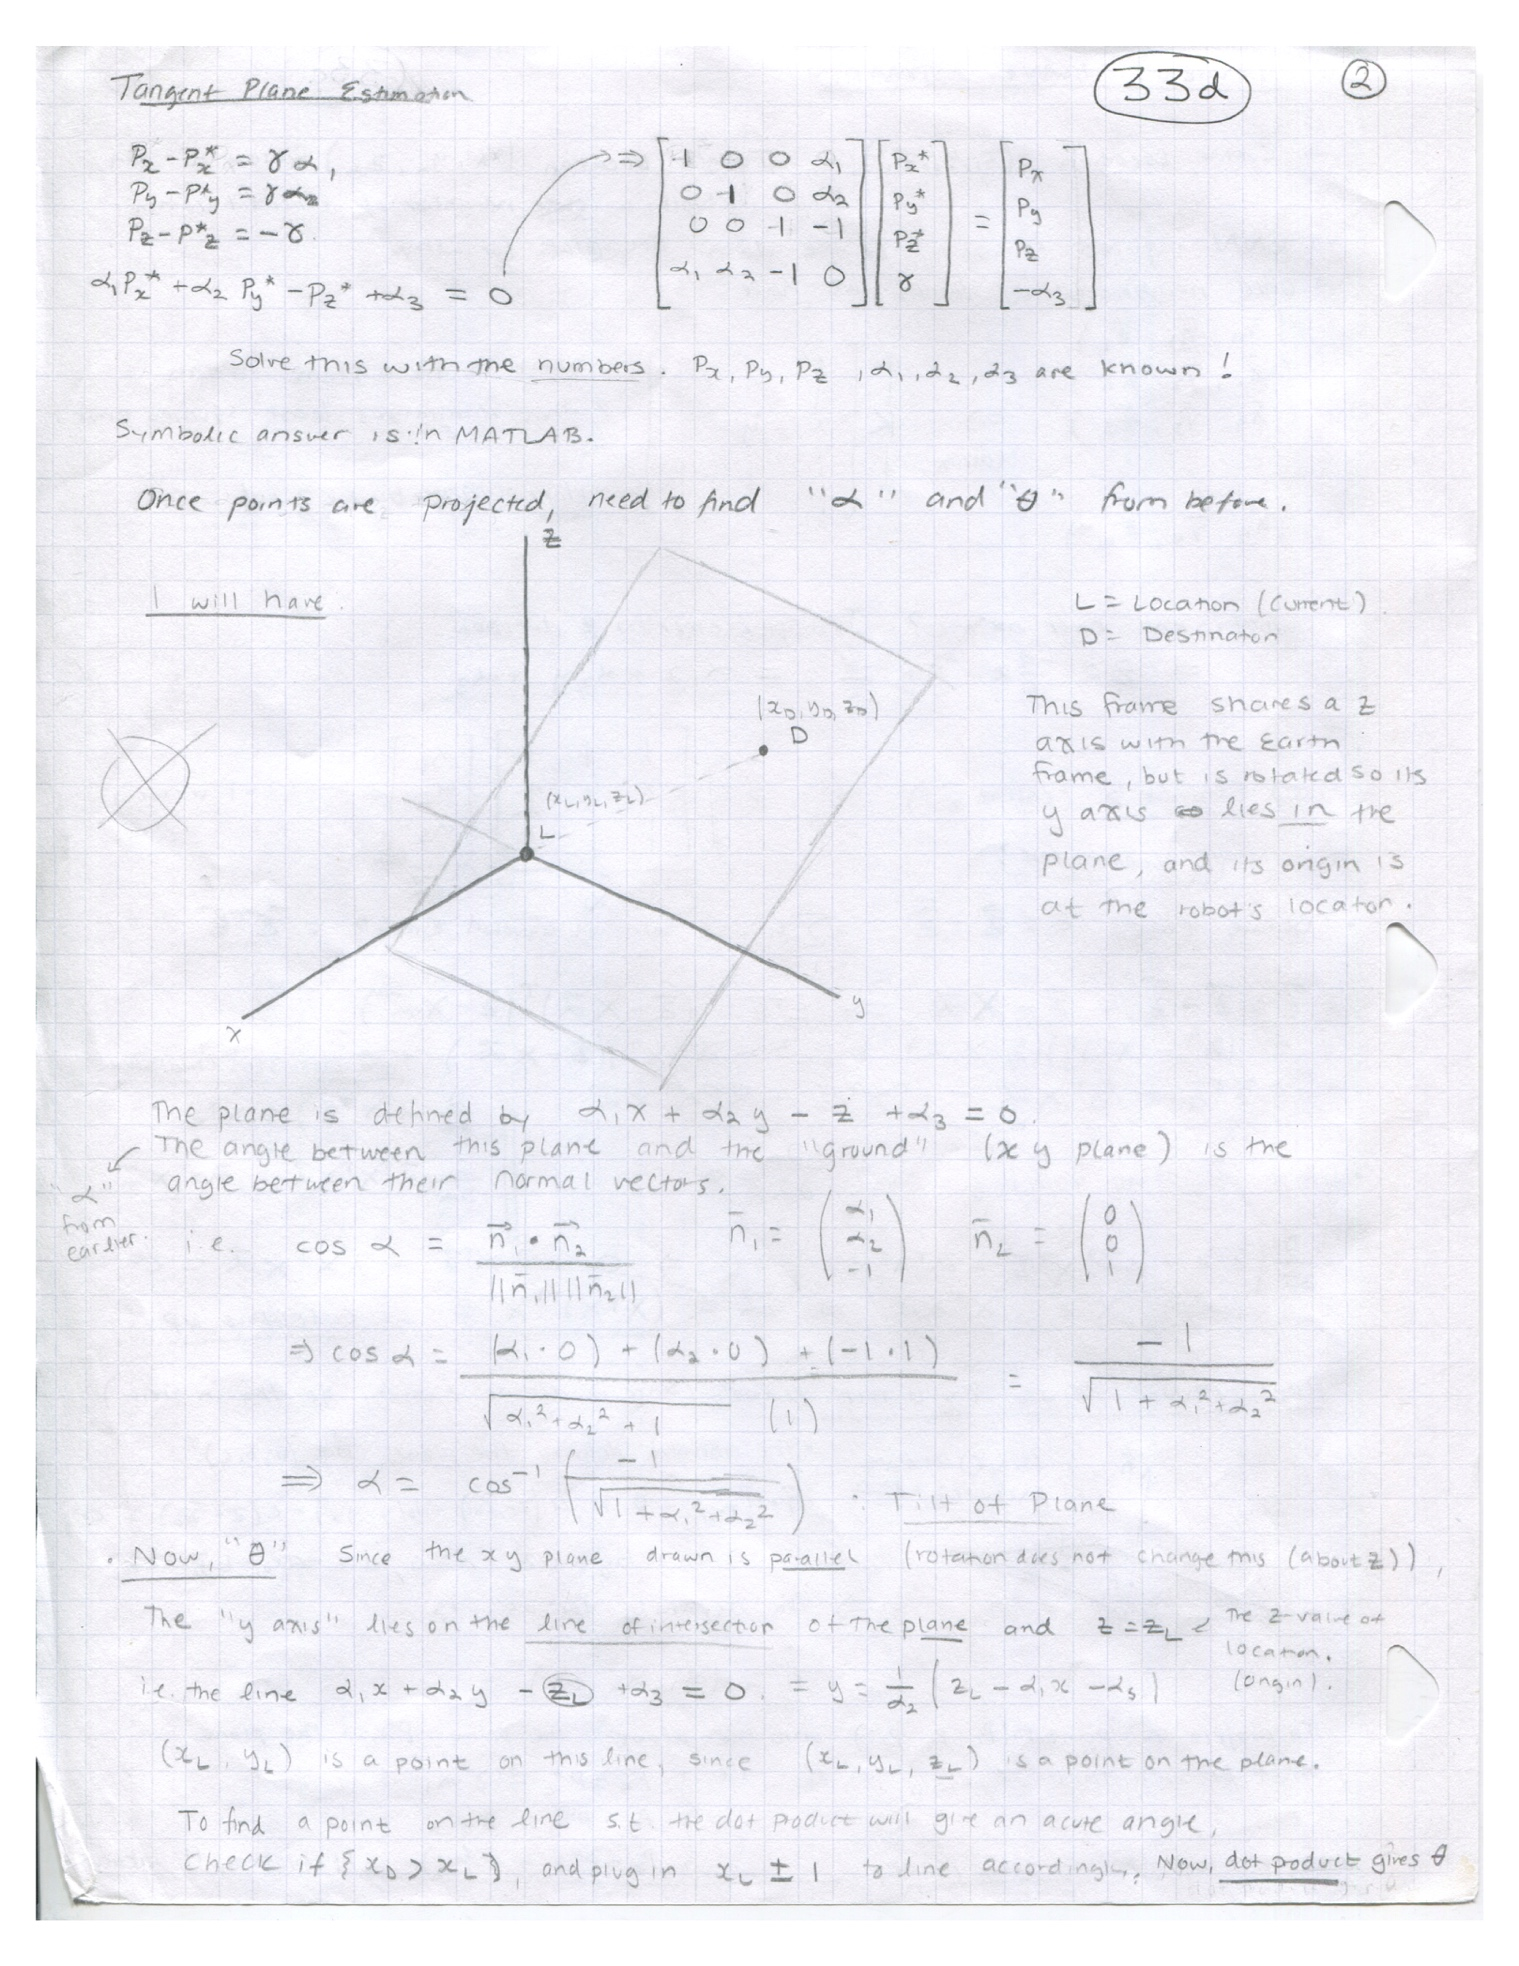 Tangent Plane Estimation
33d
2
Px - Px* = γα1
Py - Py* = γα2
Pz - P*z = -γ.
α1Px* + α2 Py* - Pz* + α3 = 0
⇒ [ 1 0 0 α1 ] [ Px* ] = [ Px ]
[ 0 1 0 α2 ] [ Py* ] [ Py ]
[ 0 0 1 -1 ] [ Pz* ] [ Pz ]
[ α1 α2 -1 0 ] [ γ ] [ -α3 ]
Solve this with the numbers. Px, Py, Pz, α1, α2, α3 are known!
Symbolic answer is in MATLAB.
Once points are projected, need to find "α" and "θ" from before.
z
I will have.
L = Location (Current).
D = Destination
(xD, yD, zD)
D
This frame shares a z
axis with the Earth
frame, but is rotated so its
y axis lies in the
plane, and its origin is
at the robot's location.
(xL, yL, zL)
L
x
y
The plane is defined by α1x + α2y - z + α3 = 0.
The angle between this plane and the "ground" (xy plane) is the
angle between their normal vectors.
"α"
from
earlier.
i.e. cos α = n1 • n2 / ||n1|| ||n2|| n1 = (α1 α2 -1) n2 = (0 0 1)
⇒ cos α = (α1 · 0) + (α2 · 0) + (-1 · 1) / √α1² + α2² + 1 (1) = -1 / √1 + α1² + α2²
⇒ α = cos⁻¹ ( -1 / √1 + α1² + α2² ) : Tilt of Plane
. Now, "θ" Since the xy plane drawn is parallel (rotation does not change this (about z)),
The "y axis" lies on the line of intersection of the plane and z = zL ← The z-value of
location.
(origin).
i.e. the line α1x + α2y - zL + α3 = 0. = y = 1/α2 (zL - α1x - α3)
(xL, yL) is a point on this line, since (xL, yL, zL) is a point on the plane.
To find a point on the line s.t. the dot product will give an acute angle,
check if {xD > xL}, and plug in xL ± 1 to line accordingly. Now, dot product gives θ